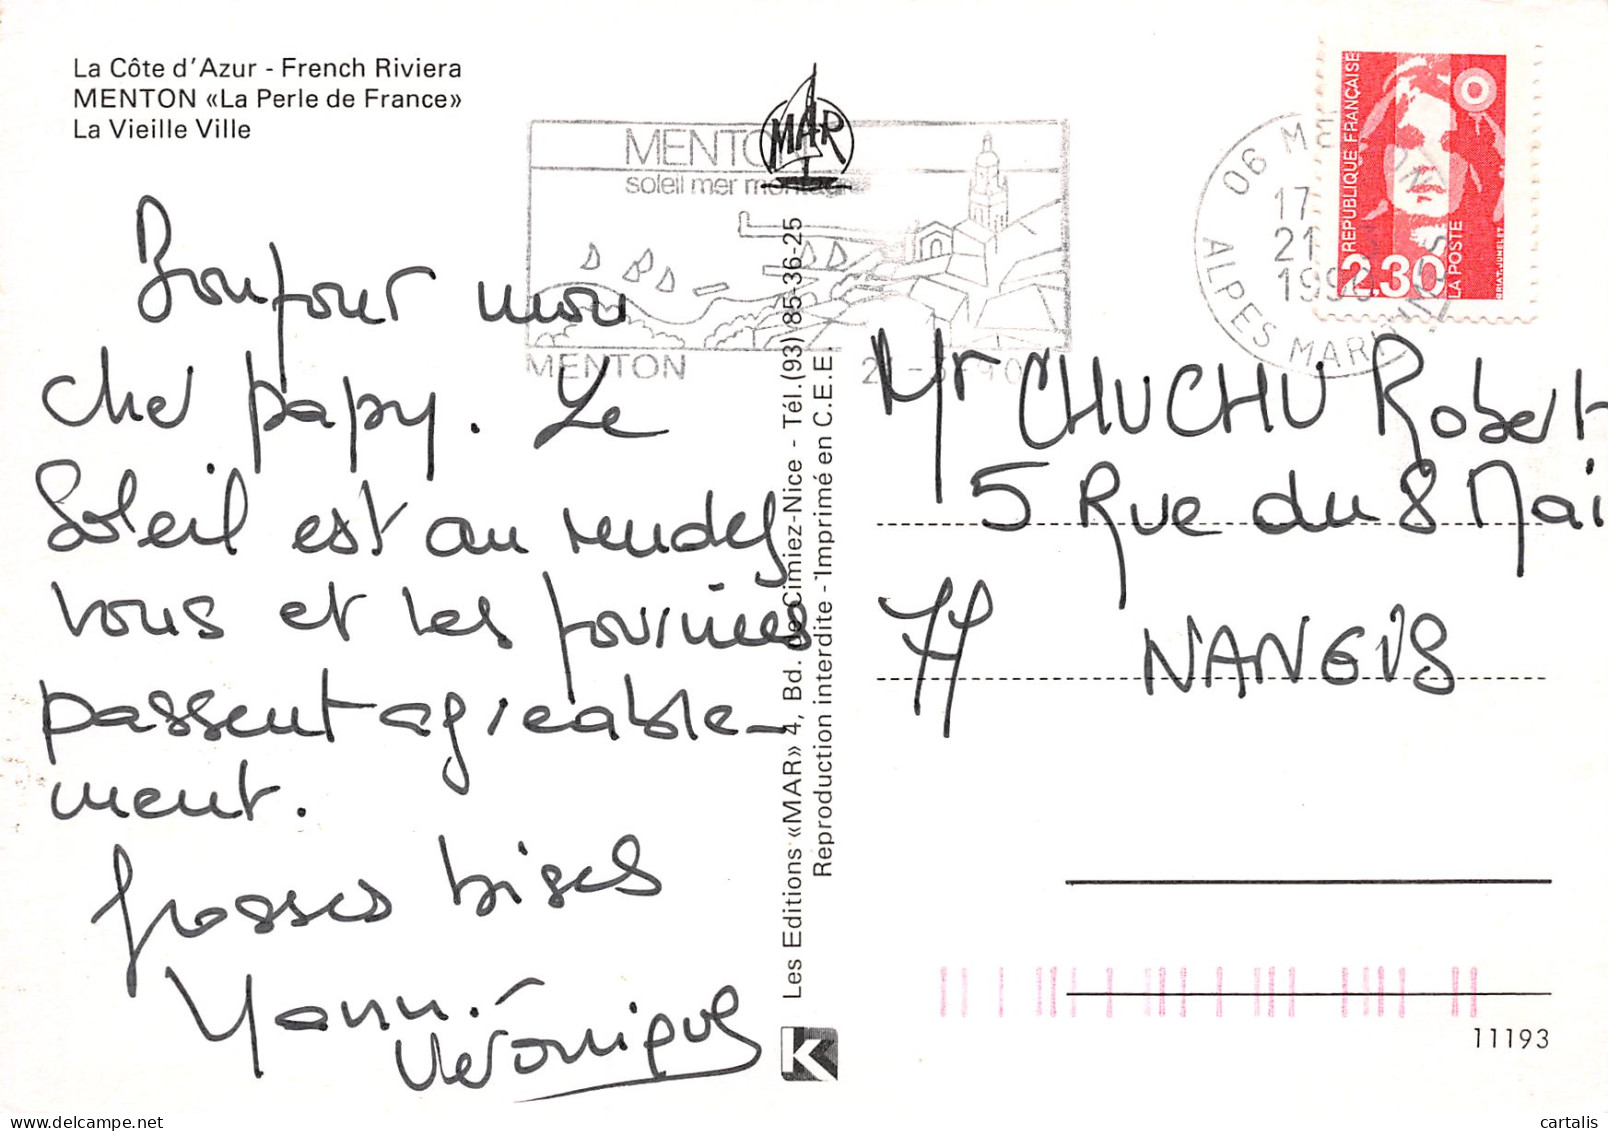 La Côte d'Azur - French Riviera
MENTON «La Perle de France»
La Vieille Ville
MENTON
soleil mer montagne
MENTON
MAR
06 MENTON
17
21
1990
ALPES MARITIMES
RÉPUBLIQUE FRANÇAISE
2.30
LA POSTE
BRIAT-JUMELET
Bonjour mon
cher papy. Le
Soleil est au rendez
vous et les journées
passent agréable-
ment.
Grosses bises
Yann.
Véronique
Les Editions «MAR» 4, Bd. de Cimiez-Nice - Tél.(93) 85-36-25
Reproduction interdite - Imprimé en C.E.E.
K
Mr CHUCHU Robert
5 Rue du 8 Mai
77 NANGIS
11193
cartalis
delcampe.net